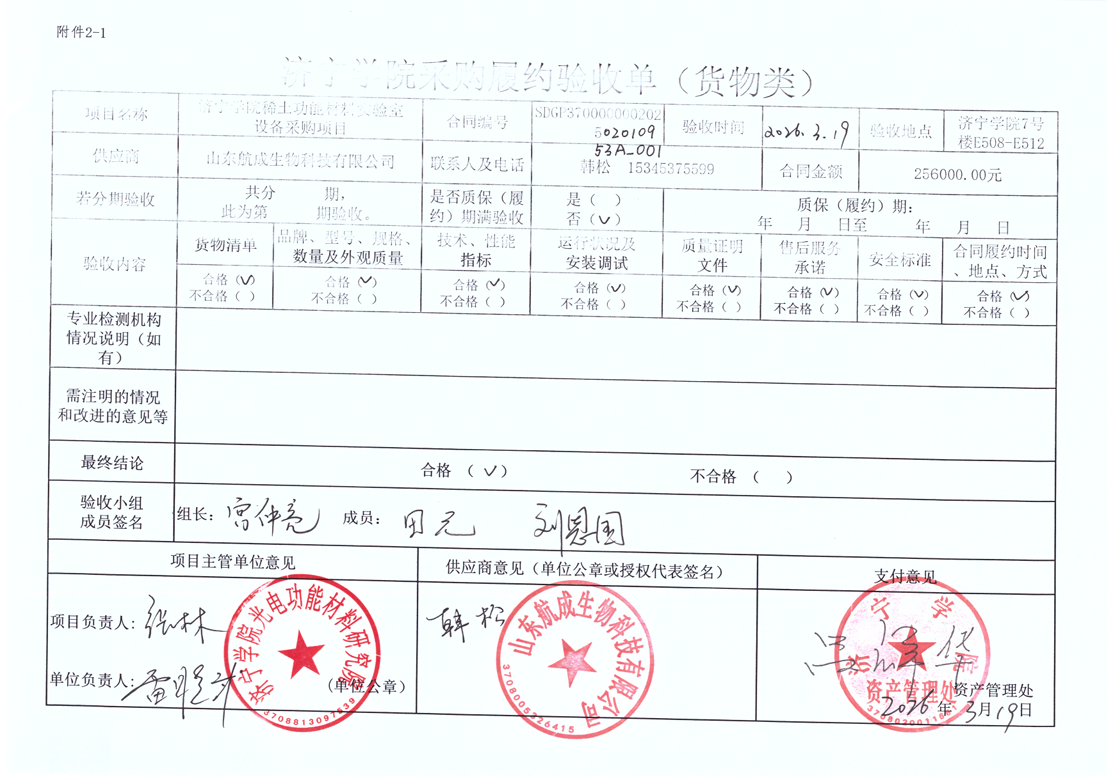 附件2-1
济宁学院采购履约验收单（货物类）
项目名称
济宁学院稀土功能材料实验室
设备采购项目
合同编号
SDGP370000000202
5020109
53A_001
验收时间
2026.3.19
验收地点
济宁学院7号
楼E508-E512
供应商
山东航成生物科技有限公司
联系人及电话
韩松 15345375599
合同金额
256000.00元
若分期验收
共分 期，
此为第 期验收。
是否质保（履
约）期满验收
是（ ）
否（√）
质保（履约）期：
年 月 日至 年 月 日
验收内容
货物清单
品牌、型号、规格、
数量及外观质量
技术、性能
指标
运行状况及
安装调试
质量证明
文件
售后服务
承诺
安全标准
合同履约时间
、地点、方式
合格（√）
不合格（ ）
合格（√）
不合格（ ）
合格（√）
不合格（ ）
合格（√）
不合格（ ）
合格（√）
不合格（ ）
合格（√）
不合格（ ）
合格（√）
不合格（ ）
合格（√）
不合格（ ）
专业检测机构
情况说明（如
有）
需注明的情况
和改进的意见等
最终结论
合格（√） 不合格（ ）
验收小组
成员签名
组长： 成员：田元 刘恩国
项目主管单位意见
供应商意见（单位公章或授权代表签名）
支付意见
项目负责人：张林
单位负责人：
（单位公章）
济宁学院光电功能材料研究院
3708813097539
韩松
山东航成生物科技有限公司
3708005326415
济宁学院
资产管理处
资产管理处
2026年3月19日